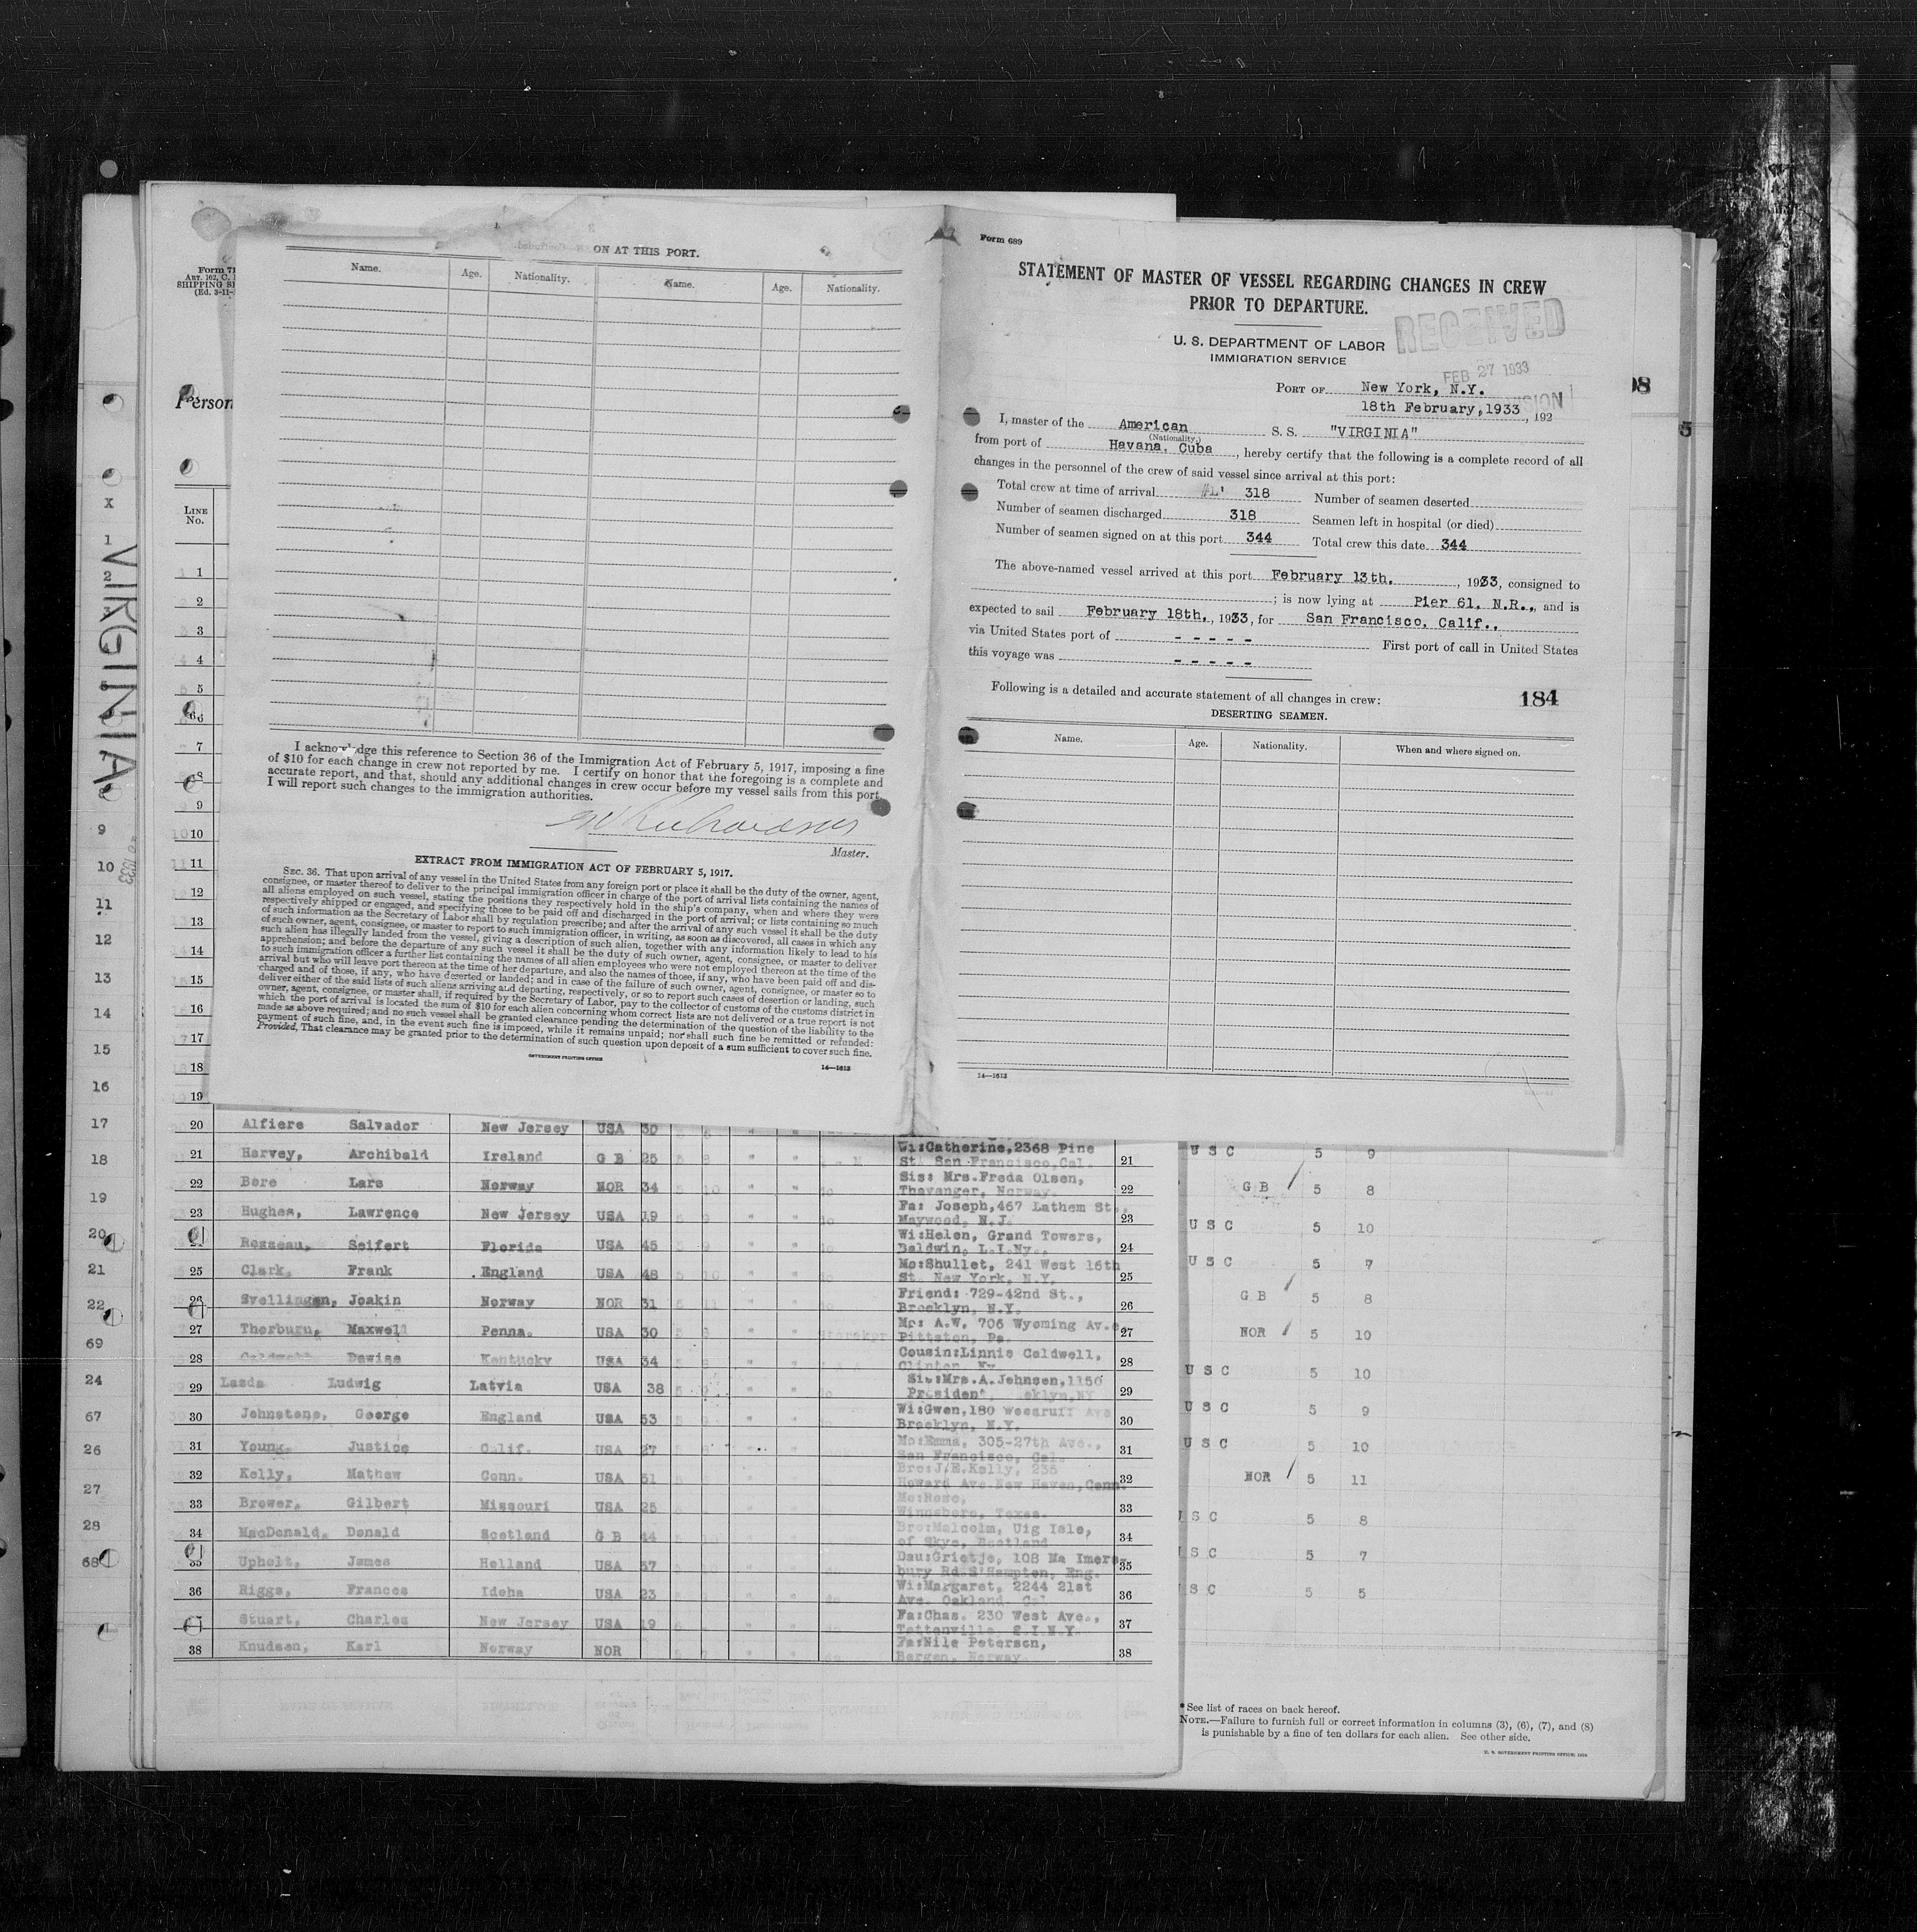 ON AT THIS PORT.
Name. Age. Nationality. Name. Age. Nationality.
I acknowledge this reference to Section 36 of the Immigration Act of February 5, 1917, imposing a fine
of $10 for each change in crew not reported by me. I certify on honor that the foregoing is a complete and
accurate report, and that, should any additional changes in crew occur before my vessel sails from this port,
I will report such changes to the immigration authorities.
Master.
EXTRACT FROM IMMIGRATION ACT OF FEBRUARY 5, 1917.
SEC. 36. That upon arrival of any vessel in the United States from any foreign port or place it shall be the duty of the owner, agent,
consignee, or master thereof to deliver to the principal immigration officer in charge of the port of arrival lists containing the names of
all aliens employed on such vessel, stating the positions they respectively hold in the ship's company, when and where they were
respectively shipped or engaged, and specifying those to be paid off and discharged in the port of arrival; or lists containing so much
of such information as the Secretary of Labor shall by regulation prescribe; and after the arrival of any such vessel it shall be the duty
of such owner, agent, consignee, or master to report to such immigration officer, in writing, as soon as discovered, all cases in which any
such alien has illegally landed from the vessel, giving a description of such alien, together with any information likely to lead to his
apprehension; and before the departure of any such vessel it shall be the duty of such owner, agent, consignee, or master to deliver
to such immigration officer a further list containing the names of all alien employees who were not employed thereon at the time of the
arrival but who will leave port thereon at the time of her departure, and also the names of those, if any, who have been paid off and dis-
charged and of those, if any, who have deserted or landed; and in case of the failure of such owner, agent, consignee, or master so to
deliver either of the said lists of such aliens arriving and departing, respectively, or so to report such cases of desertion or landing, such
owner, agent, consignee, or master shall, if required by the Secretary of Labor, pay to the collector of customs of the customs district in
which the port of arrival is located the sum of $10 for each alien concerning whom correct lists are not delivered or a true report is not
made as above required; and no such vessel shall be granted clearance pending the determination of the question of the liability to the
payment of such fine, and, in the event such fine is imposed, while it remains unpaid; nor shall such fine be remitted or refunded:
Provided, That clearance may be granted prior to the determination of such question upon deposit of a sum sufficient to cover such fine.
GOVERNMENT PRINTING OFFICE
14—1613
Form 689
STATEMENT OF MASTER OF VESSEL REGARDING CHANGES IN CREW
PRIOR TO DEPARTURE.
RECEIVED
U. S. DEPARTMENT OF LABOR
IMMIGRATION SERVICE
FEB 27 1933
PORT OF New York, N.Y.
18th February, 1933, 192
I, master of the American S. S. "VIRGINIA"
(Nationality.)
from port of Havana, Cuba, hereby certify that the following is a complete record of all
changes in the personnel of the crew of said vessel since arrival at this port:
Total crew at time of arrival 318 Number of seamen deserted
Number of seamen discharged 318 Seamen left in hospital (or died)
Number of seamen signed on at this port 344 Total crew this date 344
The above-named vessel arrived at this port February 13th, 1933, consigned to
; is now lying at Pier 61, N.R., and is
expected to sail February 18th, 1933, for San Francisco, Calif.,
via United States port of - - - - - First port of call in United States
this voyage was - - - - -
Following is a detailed and accurate statement of all changes in crew: 184
DESERTING SEAMEN.
Name. Age. Nationality. When and where signed on.
14—1613
VIRGINIA
Person
LINE
No.
1
2
3
4
5
6
7
8
9
10
11
12
13
14
15
16
17
18
19
20 Alfiere Salvador New Jersey USA 30
21 Harvey, Archibald Ireland G B 25 Wi:Catherine,2368 Pine
St. San Francisco,Cal. 21
22 Bore Lars Norway NOR 34 Sis: Mrs.Freda Olsen,
Thavanger, Norway. 22
23 Hughes, Lawrence New Jersey USA 19 Fa: Joseph,467 Lathem St.,
Maywood, N.J. 23
Rozzeau, Seifert Florida USA 45 Wi:Helen, Grand Towers,
Baldwin, L.I.Ny., 24
25 Clark, Frank England USA 48 Mo:Shullet, 241 West 16th
St. New York, N.Y. 25
26 Svellingen, Joakin Norway NOR 31 Friend: 729-42nd St.,
Brooklyn, N.Y. 26
27 Thorburn, Maxwell Penna. USA 30 A.W. 706 Wyoming Av.e
Pittston, Pa. 27
28 Dewise Kentucky USA 34 Cousin:Linnie Caldwell,
28
29 Lasda Ludwig Latvia USA 38 Sis:Mrs.A.Johnsen,1150
29
30 Johnstone, George England USA 53 Wi:Gwen,180 Woodruff Ave
Brooklyn, N.Y. 30
31 Young, Justice Calif. USA 27 Mo:Emma, 305-27th Ave.,
San Francisco, Cal. 31
32 Kelly, Mathew Conn. USA 51 Bro:J.E.Kelly, 235
Howard Ave.New Haven,Conn. 32
33 Brower, Gilbert Missouri USA 25 Mo:Rose,
Winnsboro, Texas. 33
34 MacDonald, Donald Scotland G B 44 Bro:Malcolm, Uig Isle,
of Skye, Scotland 34
35 Upholt, James Holland USA 57 Dau:Grietje, 108
bury Rd.S'Hampton, Eng. 35
36 Riggs, Frances Idaho USA 23 Wi:Margaret, 2244 21st
Ave. Oakland, Cal 36
Stuart, Charles New Jersey USA 19 Fa:Chas. 230 West Ave.,
Tottenville, S.I.N.Y. 37
38 Knudsen, Karl Norway NOR Fa:Nils Petersen,
Bergen, Norway. 38
U S C 5 9
G B 5 8
U S C 5 10
U S C 5 7
G B 5 8
NOR 5 10
U S C 5 10
U S C 5 9
U S C 5 10
NOR 5 11
S C 5 8
S C 5 7
S C 5 5
* See list of races on back hereof.
NOTE.—Failure to furnish full or correct information in columns (3), (6), (7), and (8)
is punishable by a fine of ten dollars for each alien. See other side.